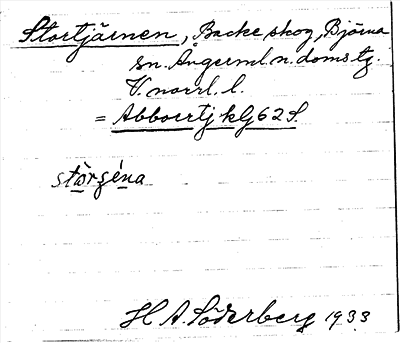 Stortjärnen, Backe skog, Björna
sn. Ångerml. n. doms tg.
V. norrl. l.
= Abborrtj kG 62 S.
stòrşéna
H A. Söderberg 1933